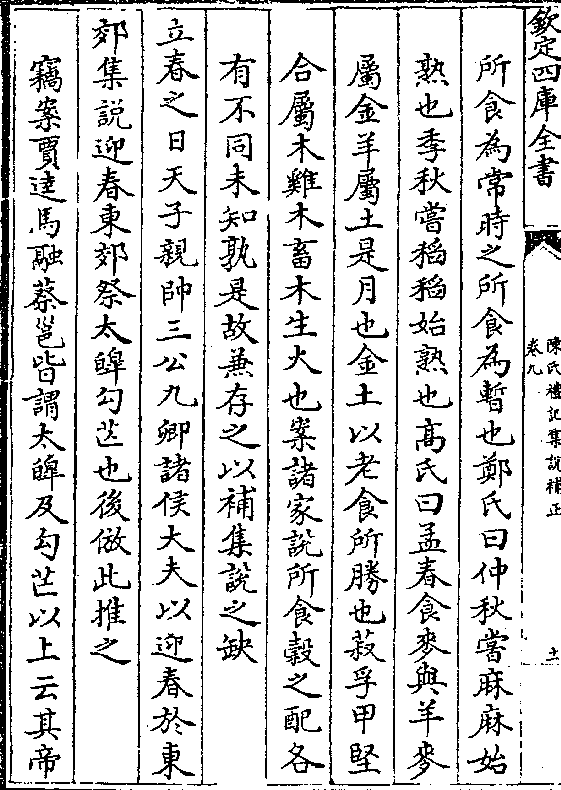 欽定四庫全書
陳氏禮記集說補正
卷九
土
所食為常時之所食為暫也鄭氏曰仲秋嘗麻麻始
熟也季秋嘗稻稻始熟也高氏曰孟春食麥與羊麥
屬金羊屬土是月也金土以老食所勝也菽孚甲堅
合屬木雞木畜木生火也案諸家說所食穀之配各
有不同未知孰是故兼存之以補集說之缺
立春之日天子親帥三公九卿諸侯大夫以迎春於東
郊集說迎春東郊祭太皥勾芒也後倣此推之
竊案賈逵馬融蔡邕皆謂太皥及勾芒以上云其帝